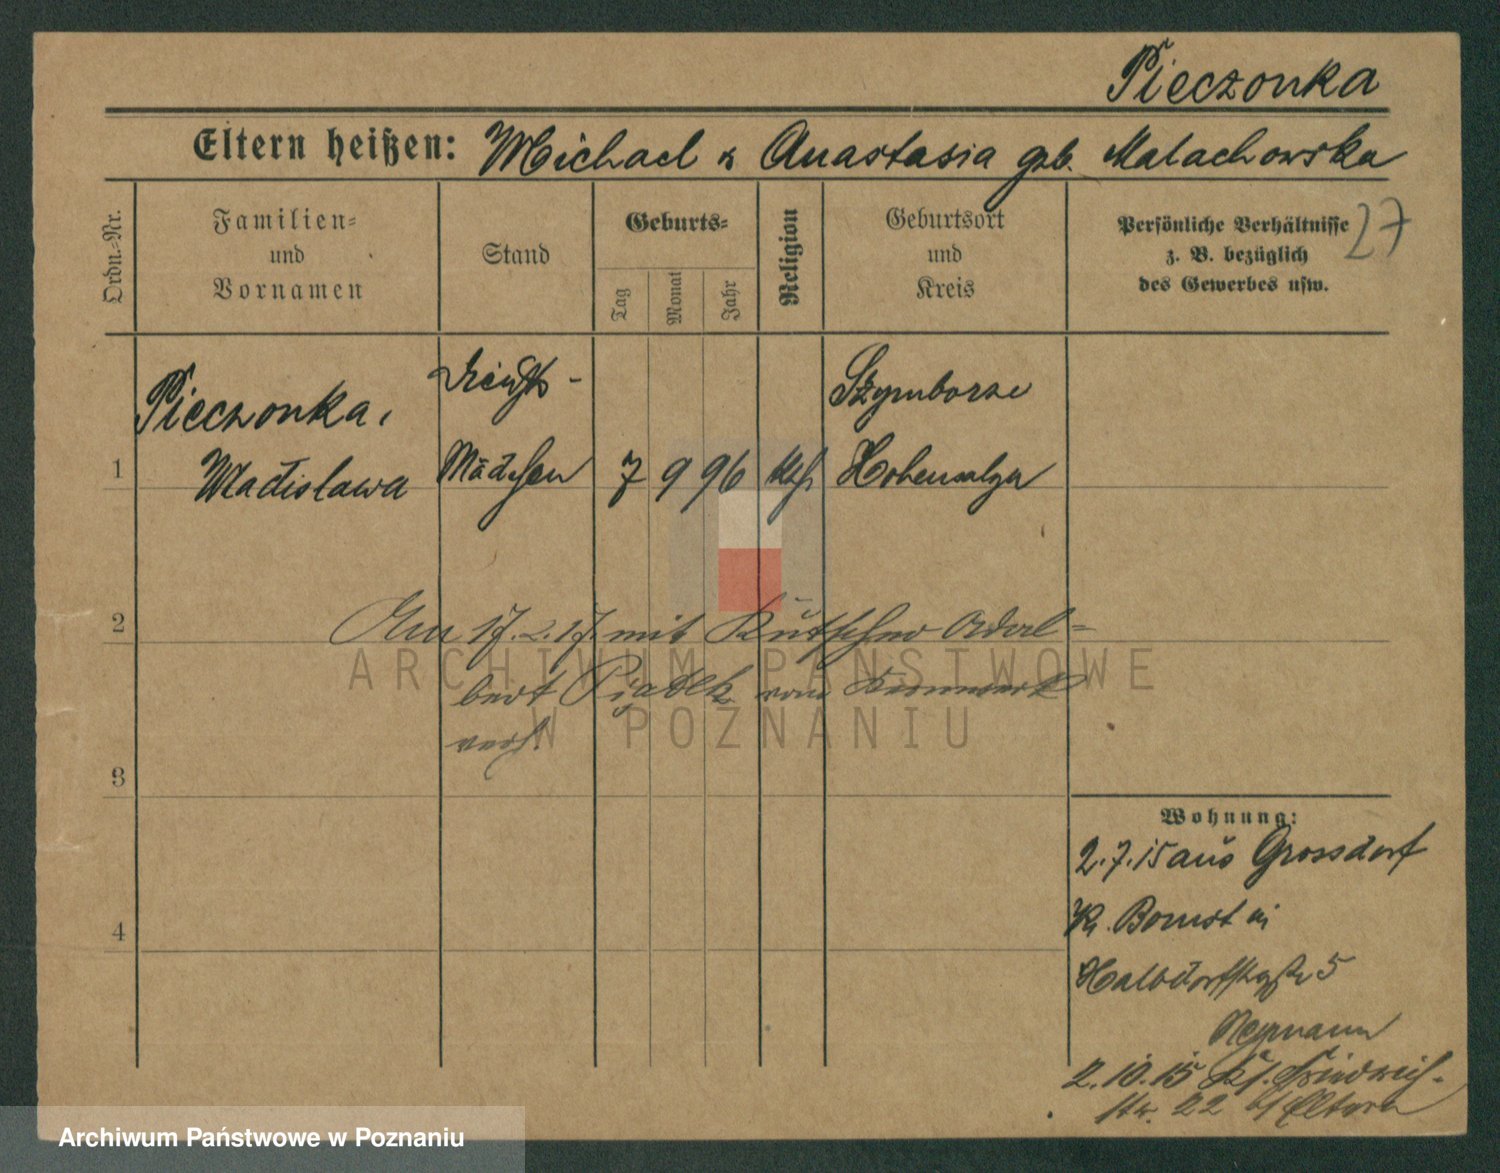 Pieczonka
Eltern heißen: Michael & Anastasia geb. Malachowska
27
Ordn.-Nr.
Familien- und Vornamen
Stand
Geburts-
Tag
Monat
Jahr
Religion
Geburtsort und Kreis
Persönliche Verhältnisse
z. B. bezüglich
des Gewerbes usw.
Pieczonka,
Dienst-
Szymborze
1 Wladislawa Mädchen 7 9 96 kth. Hohensalza
2 Am 17.2.17. mit Kutscher Adal=
bert Piątek vom
verh.
3
Wohnung:
2.7.15 aus Grossdorf
Kr. Bomst in
4
Halbdorfstraße 5
Neymann
2.10.15 Friedrich-
str. 22 b/ Eltern
ARCHIWUM PAŃSTWOWE
W POZNANIU
Archiwum Państwowe w Poznaniu